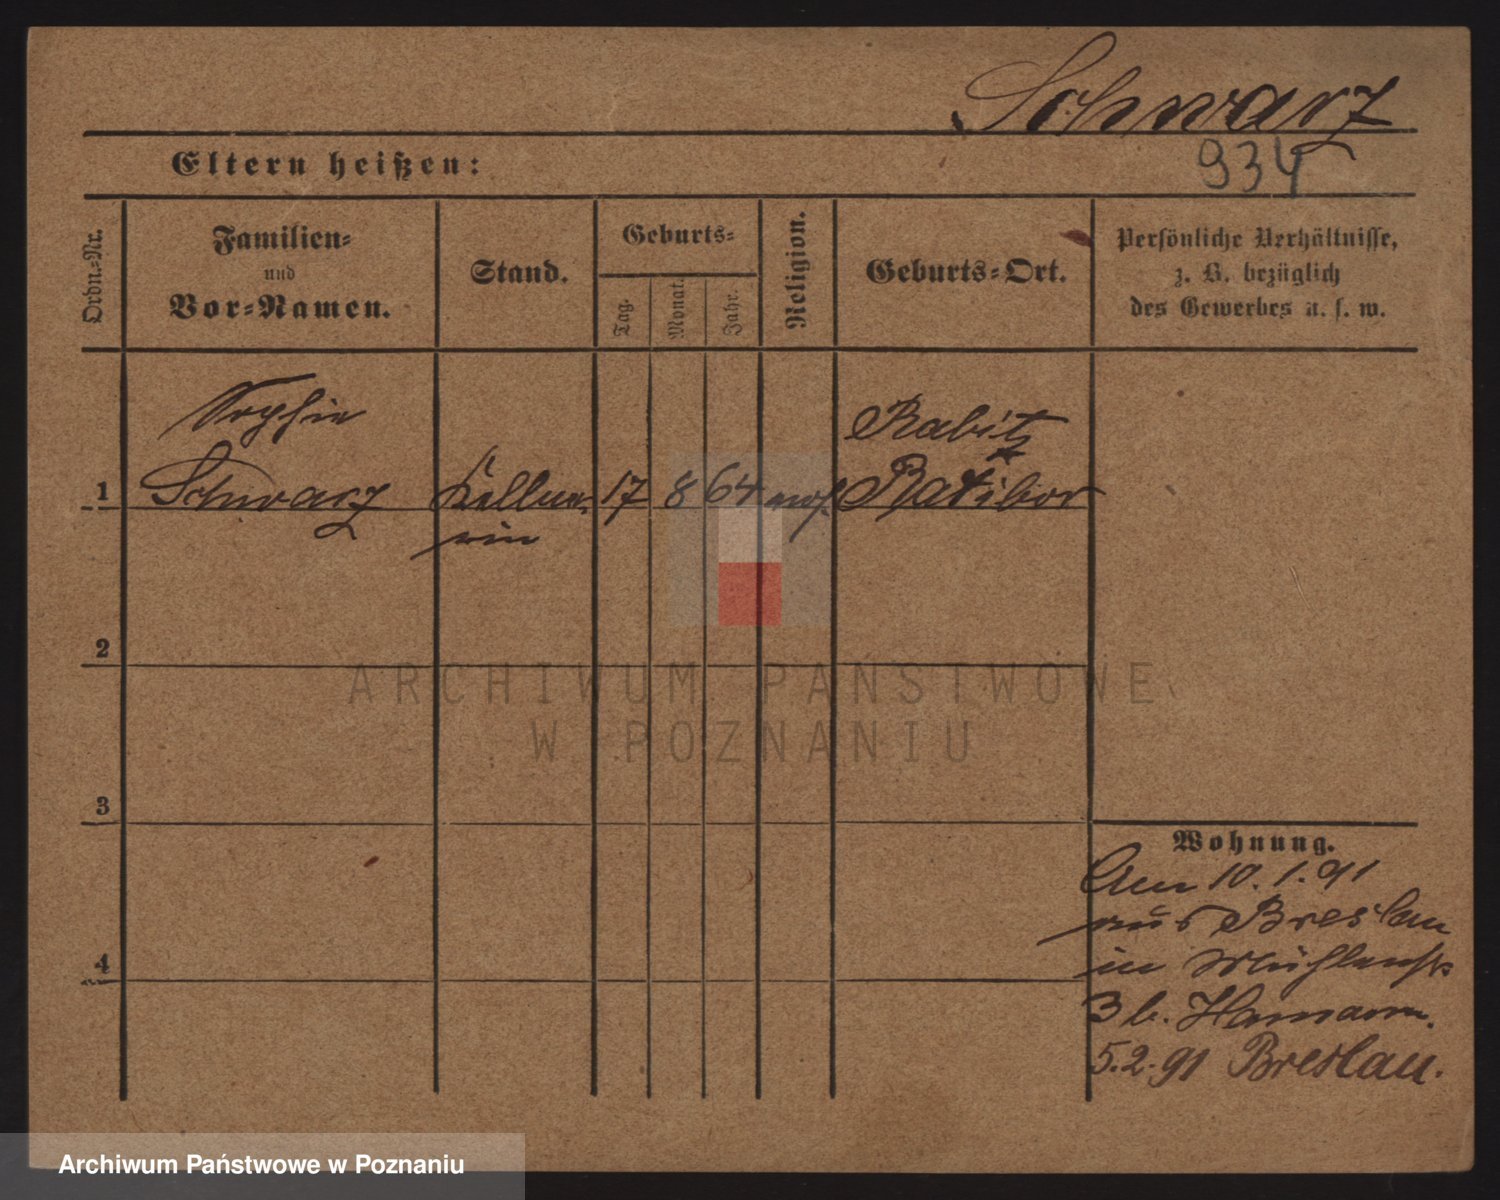 Schwarz
Eltern heißen:
934
Ordn.=Nr.
Familien=
und
Vor=Namen.
Stand.
Geburts=
Tag.
Monat.
Jahr.
Religion.
Geburts=Ort.
Persönliche Verhältnisse,
z. B. bezüglich
des Gewerbes u. s. w.
Sophie
Schwarz
Kellne-
rin
17
8
64
mos.
Ratibor
1
2
3
4
Wohnung.
Am 10.1.91
aus Breslau
in Mühlenstr
3 b.
5.2.91 Breslau.
ARCHIWUM PAŃSTWOWE
W POZNANIU
Archiwum Państwowe w Poznaniu